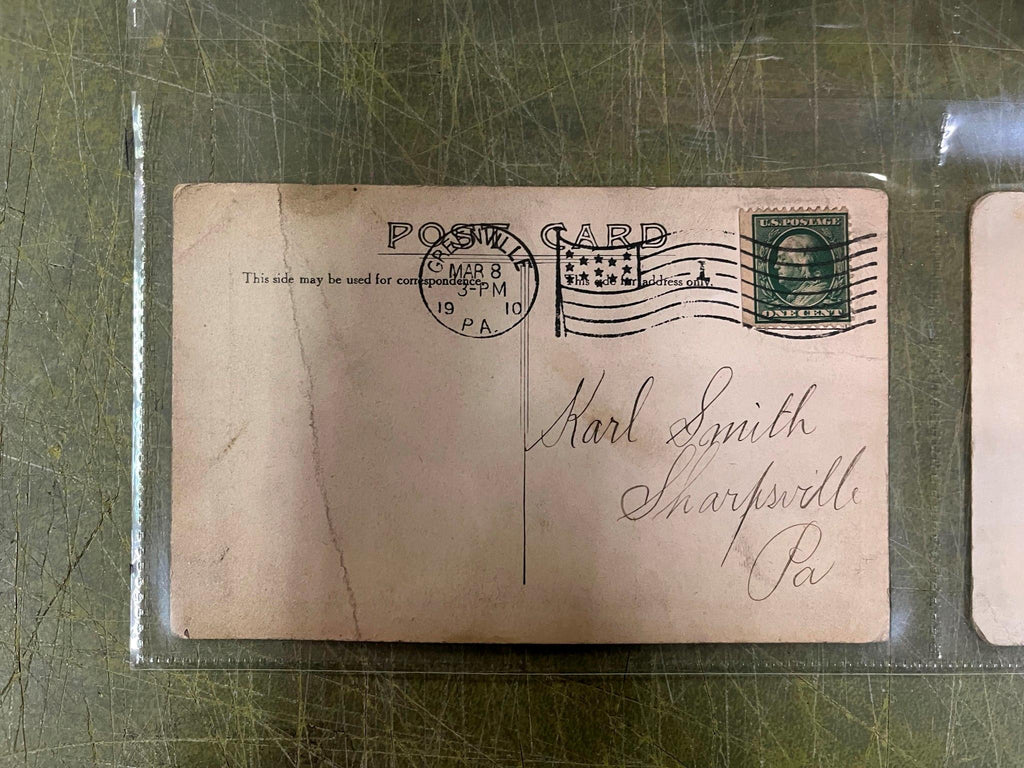 POST CARD
This side may be used for correspondence.
This side for address only.
GREENVILLE
MAR 8
3-PM
19 10
PA.
1
U.S. POSTAGE
ONE CENT
Karl Smith
Sharpsville
Pa